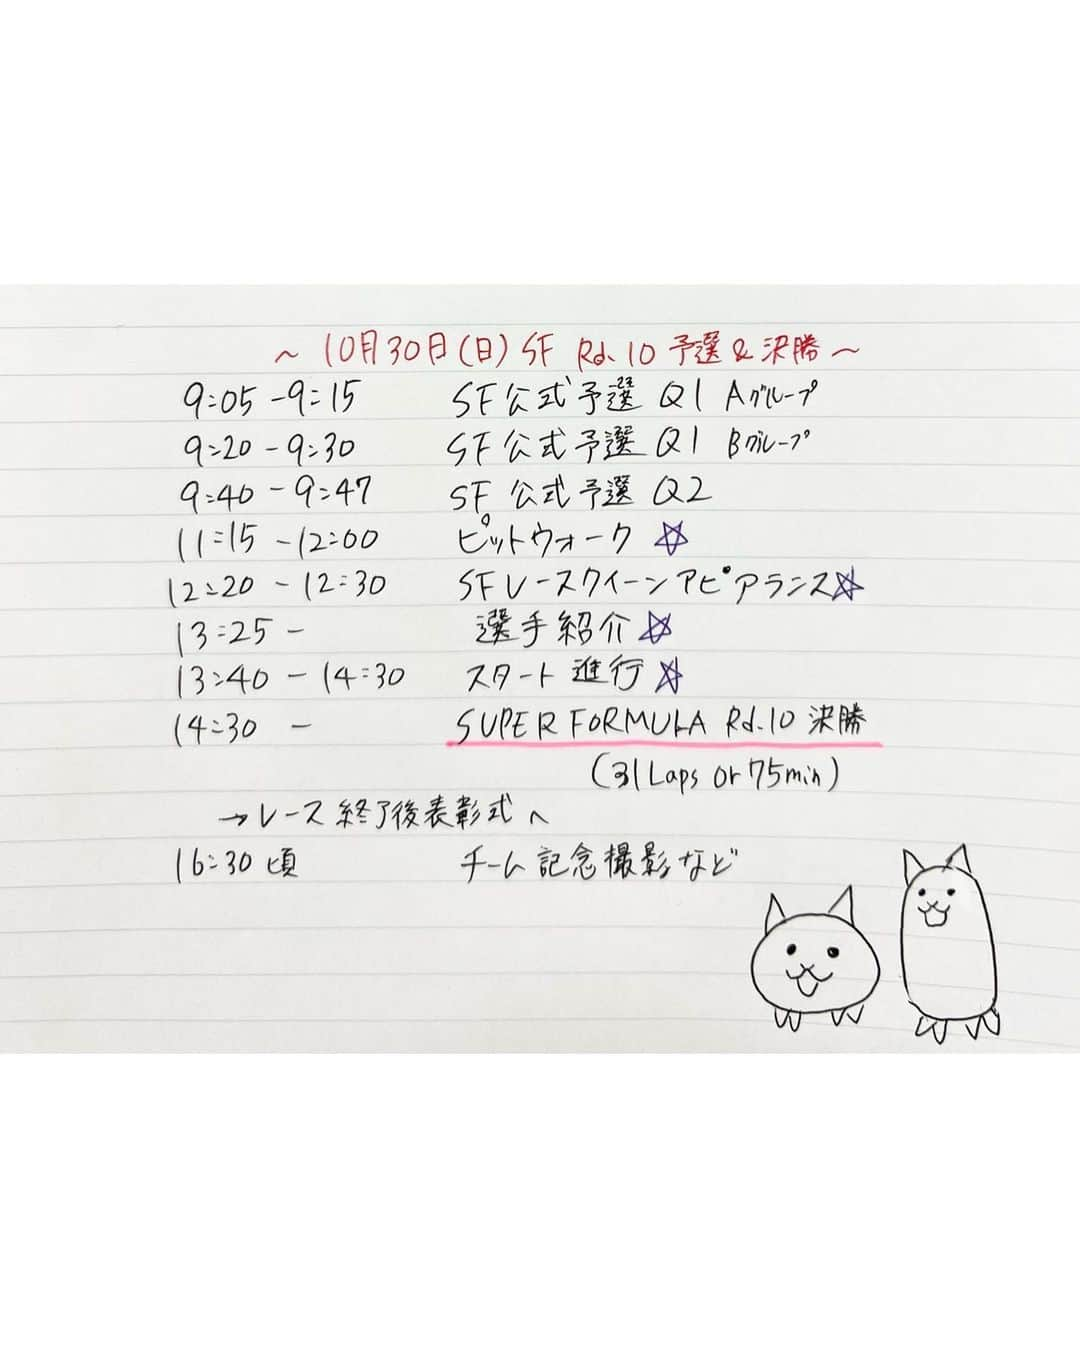 ～ 10月30日(日) SF Rd.10 予選&決勝～
9:05-9:15 SF公式予選 Q1 Aグループ
9:20-9:30 SF公式予選 Q1 Bグループ
9:40-9:47 SF公式予選 Q2
11:15-12:00 ピットウォーク☆
12:20-12:30 SFレースクイーンアピアランス☆
13:25- 選手紹介☆
13:40-14:30 スタート進行☆
14:30 - SUPER FORMULA Rd.10 決勝
(31Laps or 75min)
→レース終了後表彰式へ
16:30頃 チーム記念撮影など